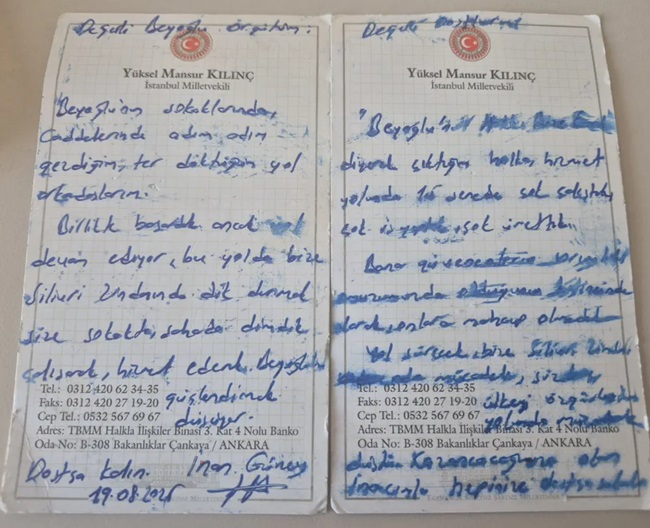 Değerli Beyoğlu örgütüm:
Yüksel Mansur KILINÇ
İstanbul Milletvekili
Beyoğlu'nun sokaklarında,
Caddelerinde adım adım
gezdiğim, ter döktüğüm yol
arkadaşlarım.
Birlikte başardık ancak yol
devam ediyor, bu yolda bize
Silivri Zindanında dik durmak
size sokakta, sahada dimdik
çalışarak, hizmet ederek Beyoğlunu
Tel.: 0312 420 62 34-35
güçlendirmek
Faks: 0312 420 27 19-20
düşüyor.
Cep Tel.: 0532 567 69 67
Adres: TBMM Halkla İlişkiler Binası 3. Kat 4 Nolu Banko
Oda No: B-308 Bakanlıklar Çankaya / ANKARA
Dostça kalın. İnan Güney
19.08.2025
Değerli
Yüksel Mansur KILINÇ
İstanbul Milletvekili
"Beyoğlu'n
diyerek çıktığım halka hizmet
yolunda 1.5 senede çok çalıştık,
çok iş yaptık, çok ürettik.
Bana
olarak, onlara mahcup olmadık
Yol sürecek, bize Silivri
mücadele,
Tel.: 0312 420 62 34-35
Faks: 0312 420 27 19-20
ülkeyi
Cep Tel.: 0532 567 69 67
Adres: TBMM Halkla İlişkiler Binası 3. Kat 4 Nolu Banko
Oda No: B-308 Bakanlıklar Çankaya / ANKARA
düştü. Kazanacağımıza olan
inancımla hepinize